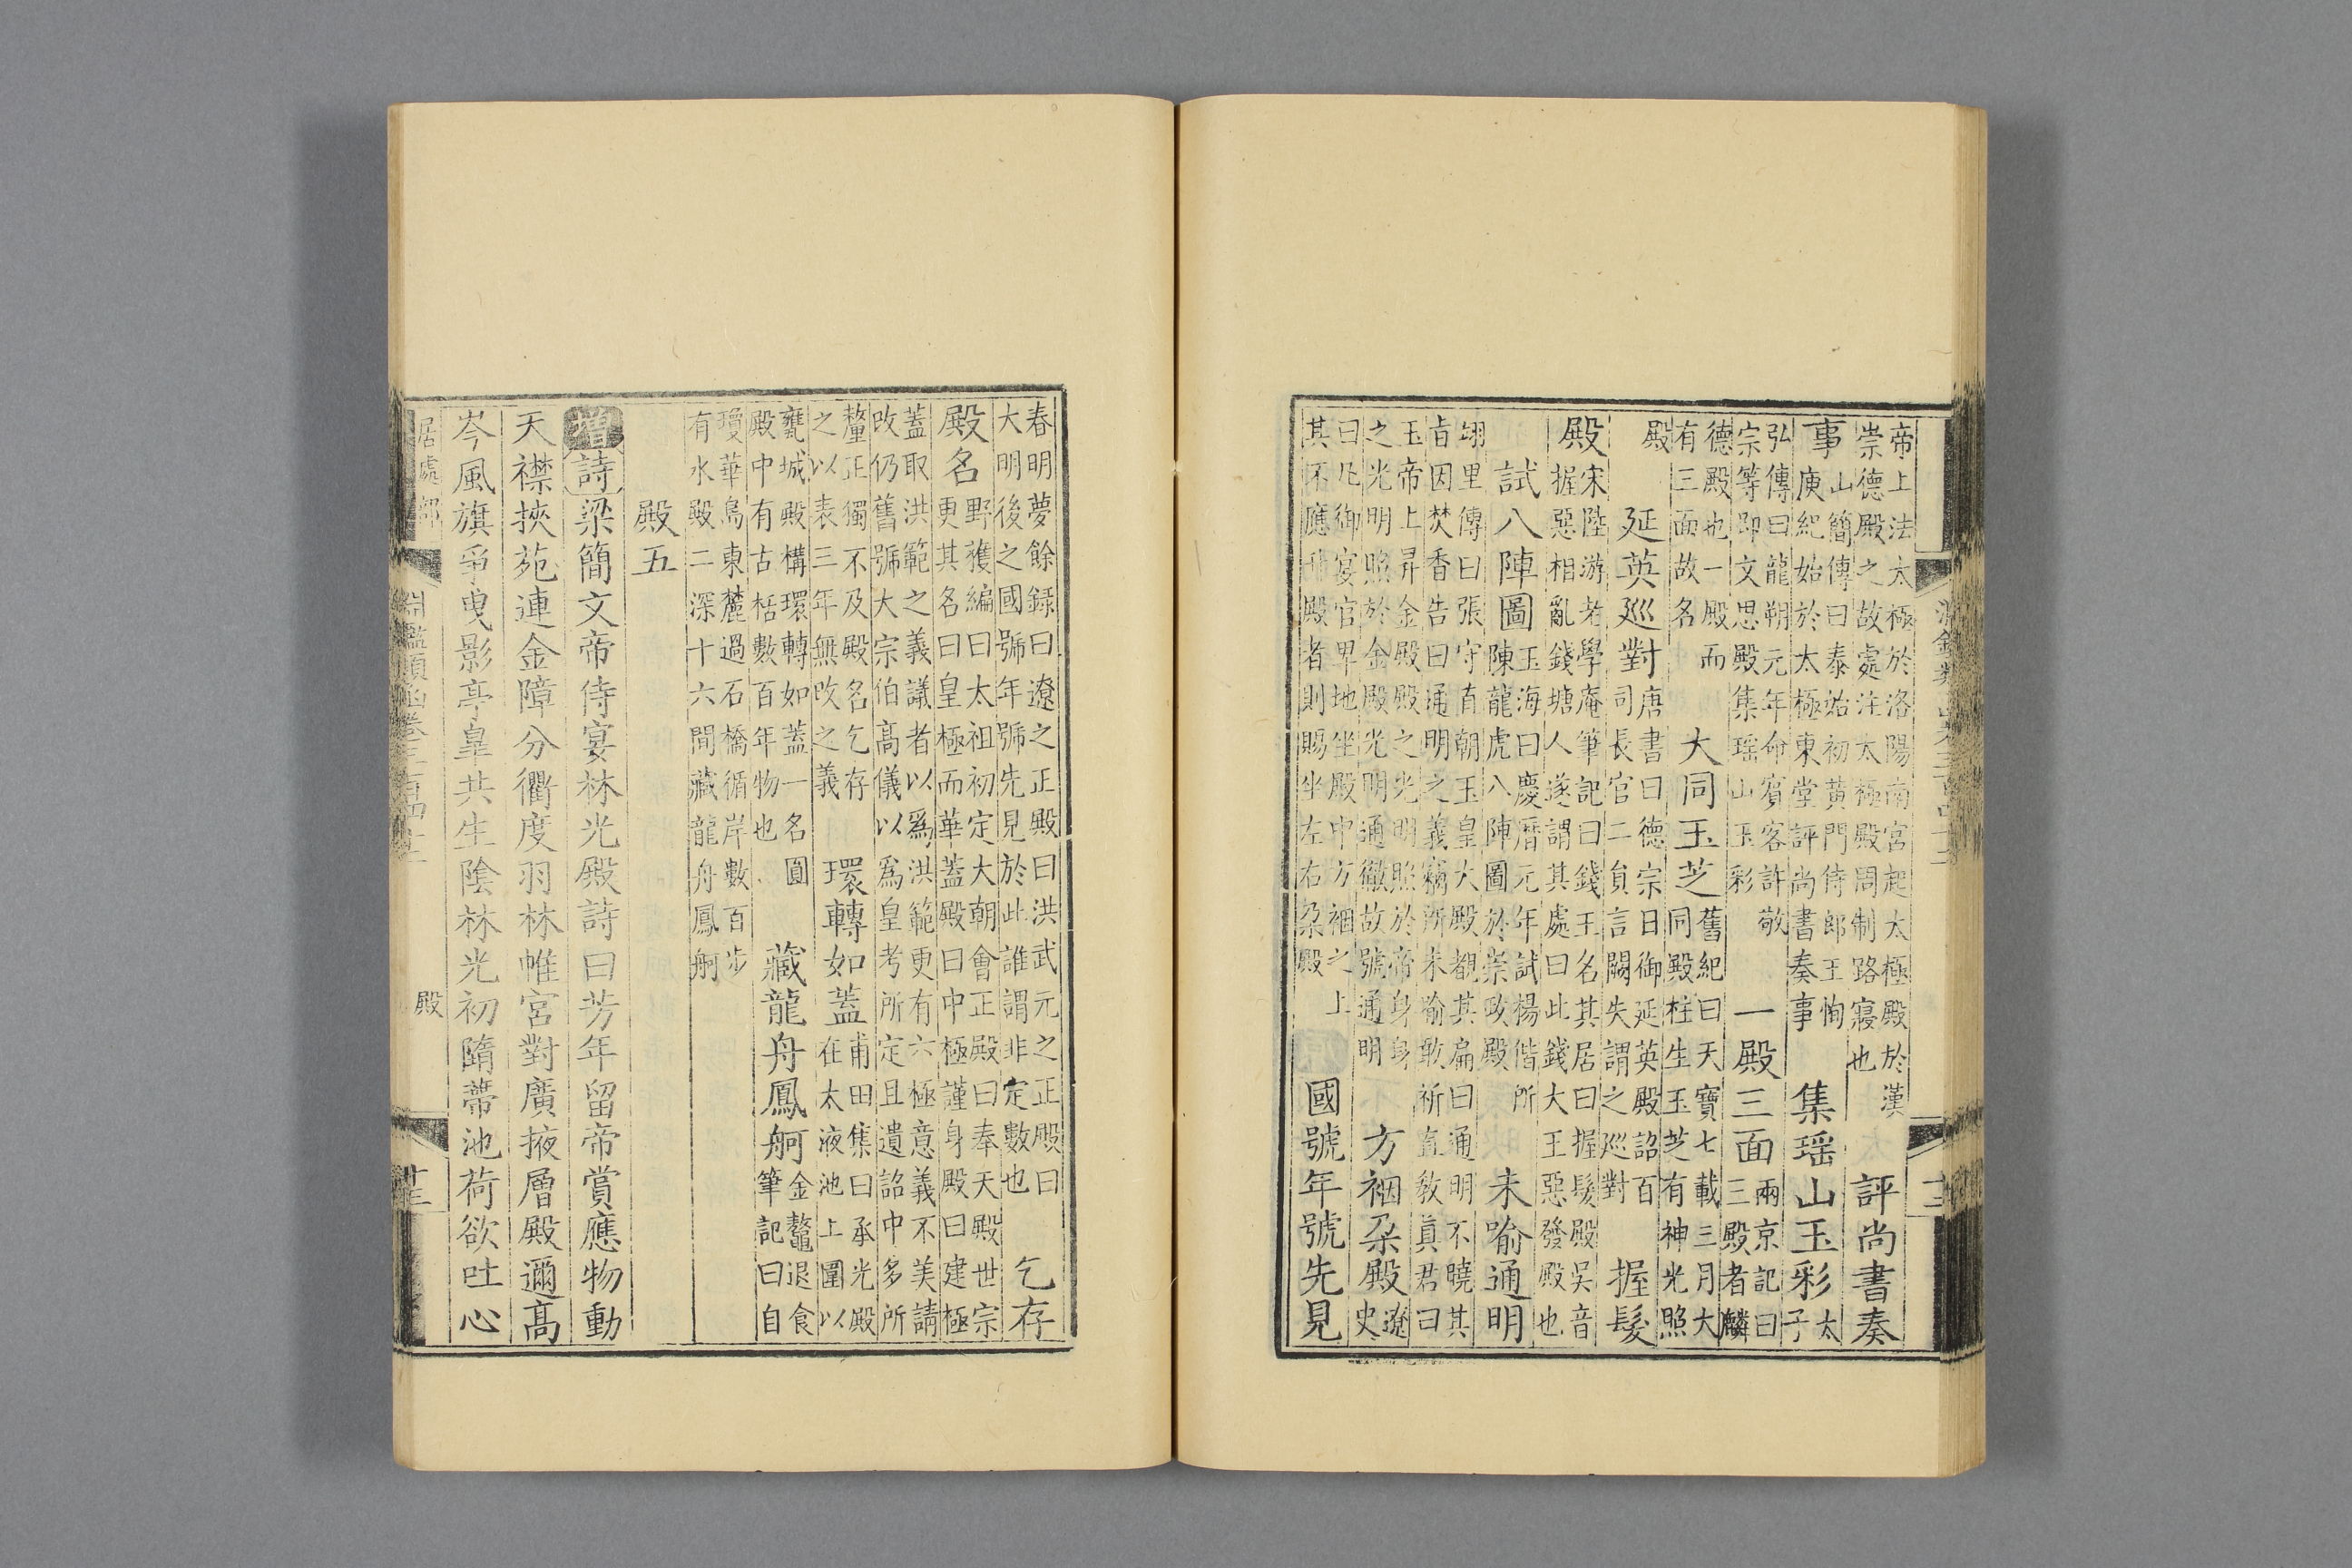 帝上法太極於洛陽南宮起太極殿於漢
崇德殿之故處注太極殿周制路寢也
評尚書奏
事
山簡傳曰泰始初黃門侍郎王恂
庾純始於太極東堂評尚書奏事
集瑶山玉彩
太
子
弘傳曰龍朔元年命賓客許敬
宗等即文思殿集瑶山玉彩
一殿三面
兩京記曰
三殿者麟
德殿也一殿而
有三面故名
大同玉芝
舊紀曰天寶七載三月大
同殿柱生玉芝有神光照
殿
延英巡對
唐書曰德宗日御延英殿詔百
司長官二員言闕失謂之巡對
握髮
殿
宋陸游老學庵筆記曰錢王名其居曰握髮殿吳音
握惡相亂錢塘人遂謂其處曰此錢大王惡發殿也
試八陣圖
玉海曰慶曆元年試楊偕所
陳龍虎八陣圖於崇政殿
未喻通明
翊里傳曰張守真朝玉皇大殿覩其扁曰通明不曉其
旨因焚香告曰通明之義竊所未喻敢祈直教真君曰
玉帝上昇金殿殿之光明照於帝身身
之光明照於金殿殿光明通徹故號通明
方裀朶殿
遼
史
曰凡御宴官卑地坐殿中方裀之上
其不應升殿者則賜坐左右朶殿
國號年號先見
春明夢餘録曰遼之正殿曰洪武元之正殿曰
大明後之國號年號先見於此誰謂非定數也
乞存
殿名
野獲編曰太祖初定大朝會正殿曰奉天殿世宗
更其名曰皇極而華蓋殿曰中極謹身殿曰建極
蓋取洪範之義議者以爲洪範更有六極意義不美請
改仍舊號大宗伯高儀以爲皇考所定且遺詔中多所
釐正獨不及殿名乞存
之以表三年無改之義
環轉如蓋
甫田集曰承光殿
在太液池上圍以
甕城殿構環轉如蓋一名圓
殿中有古栝數百年物也
藏龍舟鳳舸
金鼇退食
筆記曰自
瓊華島東麓過石橋循岸數百步
有水殿二深十六間藏龍舟鳳舸
殿五
增詩梁簡文帝侍宴林光殿詩曰芳年留帝賞應物動
天襟挾苑連金障分衢度羽林帷宮對廣掖層殿邇高
岑風旗爭曳影亭臯共生陰林光初隋蔕池荷欲吐心
居處部
淵鑑類函卷三百四十二
殿